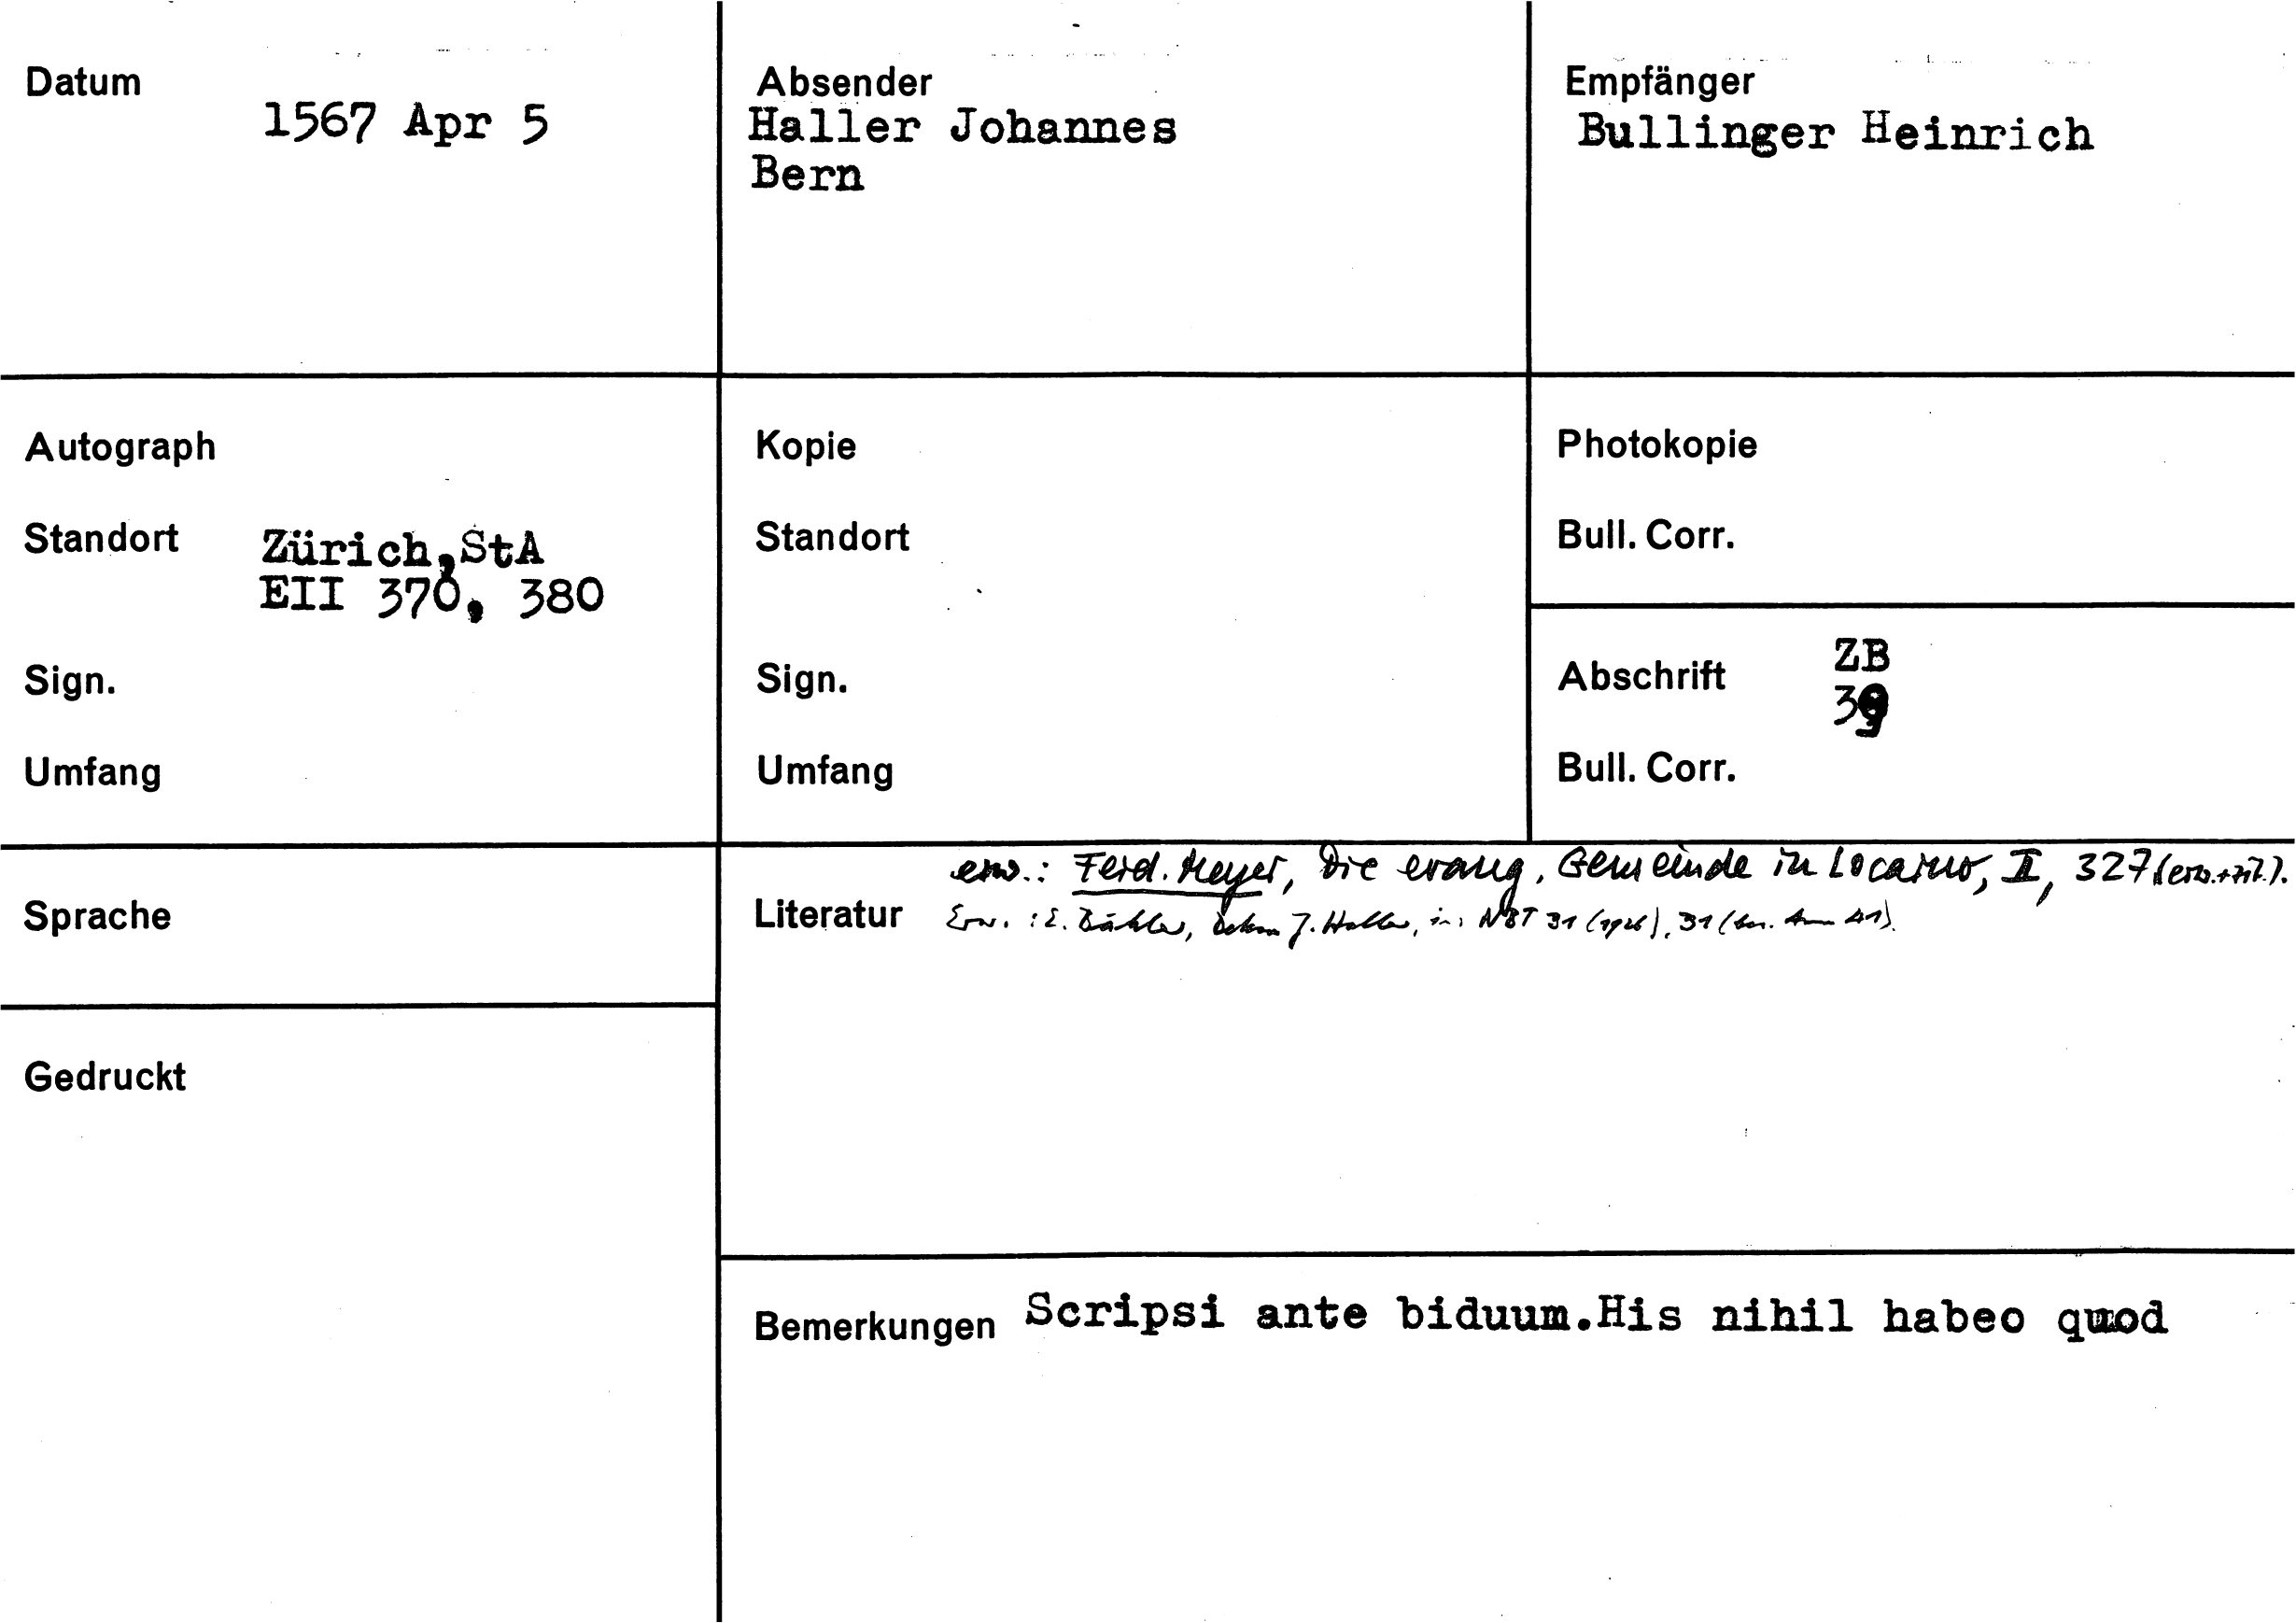 Datum
1567 Apr 5
Absender
Haller Johannes
Bern
Empfänger
Bullinger Heinrich
Autograph
Standort
Zürich,StA
EII 370, 380
Sign.
Umfang
Kopie
Standort
Sign.
Umfang
Photokopie
Bull. Corr.
Abschrift
ZB
39
Bull. Corr.
Sprache
Gedruckt
erw.: Ferd. Meyer, Die evang. Gemeinde in Locarno, II, 327 (erw.+zit.).
Literatur Erw.: E. Bähler, Dekan J. Haller, in: NBT 31 (1926), 31 (bes. Anm 41).
Bemerkungen Scripsi ante biduum.His nihil habeo quod